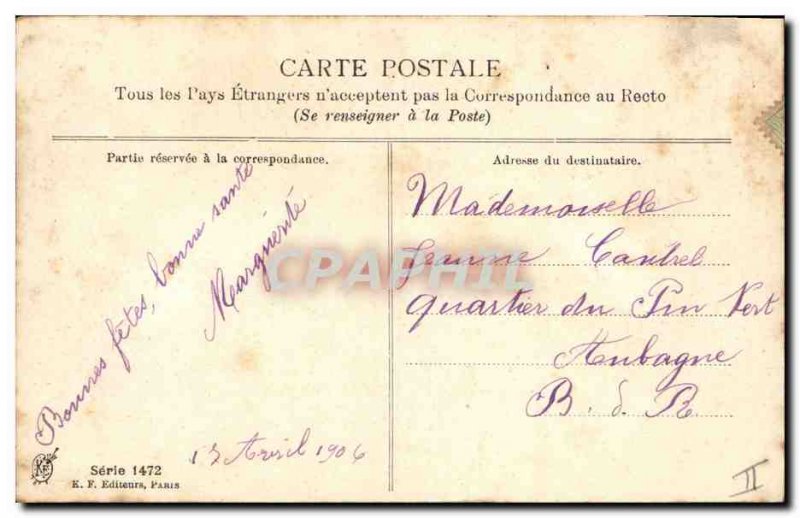 CARTE POSTALE
Tous les Pays Étrangers n'acceptent pas la Correspondance au Recto
(Se renseigner à la Poste)
Partie réservée à la correspondance.
Bonnes fêtes, bonne santé
Marguerite
13 Avril 1906
Série 1472
K. F. Editeurs, PARIS
KF
Adresse du destinataire.
Mademoiselle
Jeanne Cautrel
quartier du Pin Vert
Aubagne
B. d. R
II
CPAPHIL